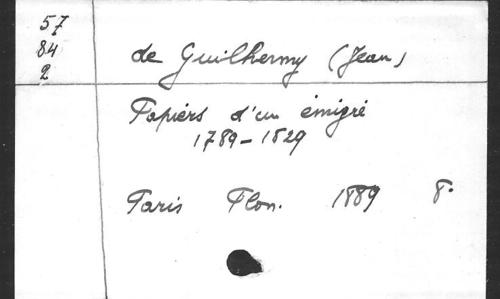 57
84
2
de Guilhermy (Jean)
Papiers d'un émigré
1789-1829
Paris Plon. 1889 8°